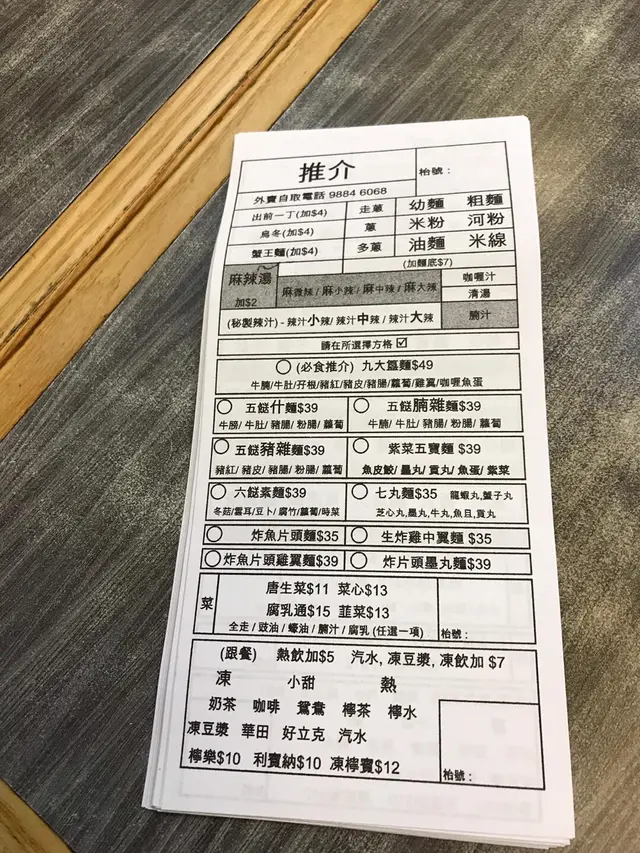 推介
枱號：
外賣自取電話 9884 6068
出前一丁(加$4) 走蔥 幼麵 粗麵
烏冬(加$4) 蔥 米粉 河粉
蟹王麵(加$4) 多蔥 油麵 米線
(加麵底$7)
麻辣湯 加$2
麻微辣 / 麻小辣 / 麻中辣 / 麻大辣
咖喱汁
清湯
(秘製辣汁) - 辣汁小辣/ 辣汁中辣 / 辣汁大辣
腩汁
請在所選擇方格☑
(必食推介) 九大簋麵$49
牛腩/牛肚/孖根/豬紅/豬皮/豬腸/蘿蔔/雞翼/咖喱魚蛋
五餸什麵$39
牛膀/ 牛肚/ 豬腸/ 粉腸/ 蘿蔔
五餸腩雜麵$39
牛腩/ 牛肚/ 豬腸/ 粉腸/ 蘿蔔
五餸豬雜麵$39
豬紅/ 豬皮/ 豬腸/ 粉腸/ 蘿蔔
紫菜五寶麵 $39
魚皮餃/ 墨丸/ 貢丸/ 魚蛋/ 紫菜
六餸素麵$39
冬菇/雲耳/豆卜/ 腐竹/蘿蔔/時菜
七丸麵$35 龍蝦丸,蟹子丸
芝心丸,墨丸,牛丸,魚旦,貢丸
炸魚片頭麵$35
生炸雞中翼麵 $35
炸魚片頭雞翼麵$39
炸片頭墨丸麵$39
菜
唐生菜$11 菜心$13
腐乳通$15 韮菜$13
全走 / 豉油 / 蠔油 / 腩汁 / 腐乳 (任選一項)
枱號：
(跟餐) 熱飲加$5 汽水, 凍豆漿, 凍飲加 $7
凍 小甜 熱
奶茶 咖啡 鴛鴦 檸茶 檸水
凍豆漿 華田 好立克 汽水
檸樂$10 利賓納$10 凍檸賓$12
枱號：